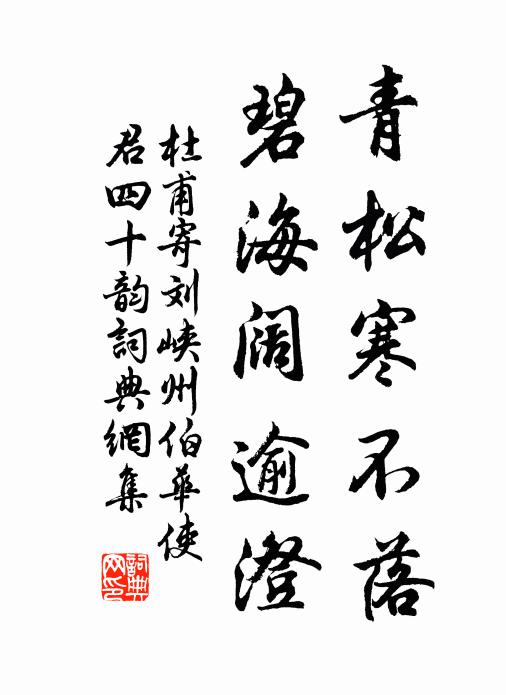 青松寒不落
碧海阔逾澄
杜甫寄刘峡州伯華使
君四十韵詞典網集
詞典
网印